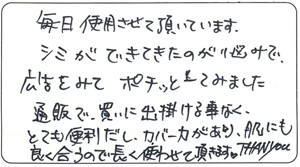 毎日使用させて頂いています。
シミができてきたのが悩みで、
広告をみてポチッとしてみました
通販で、買いに出掛ける事なく、
とても便利だし、カバー力があり、肌にも
良く合うので長く使わせて頂きます。THANK you